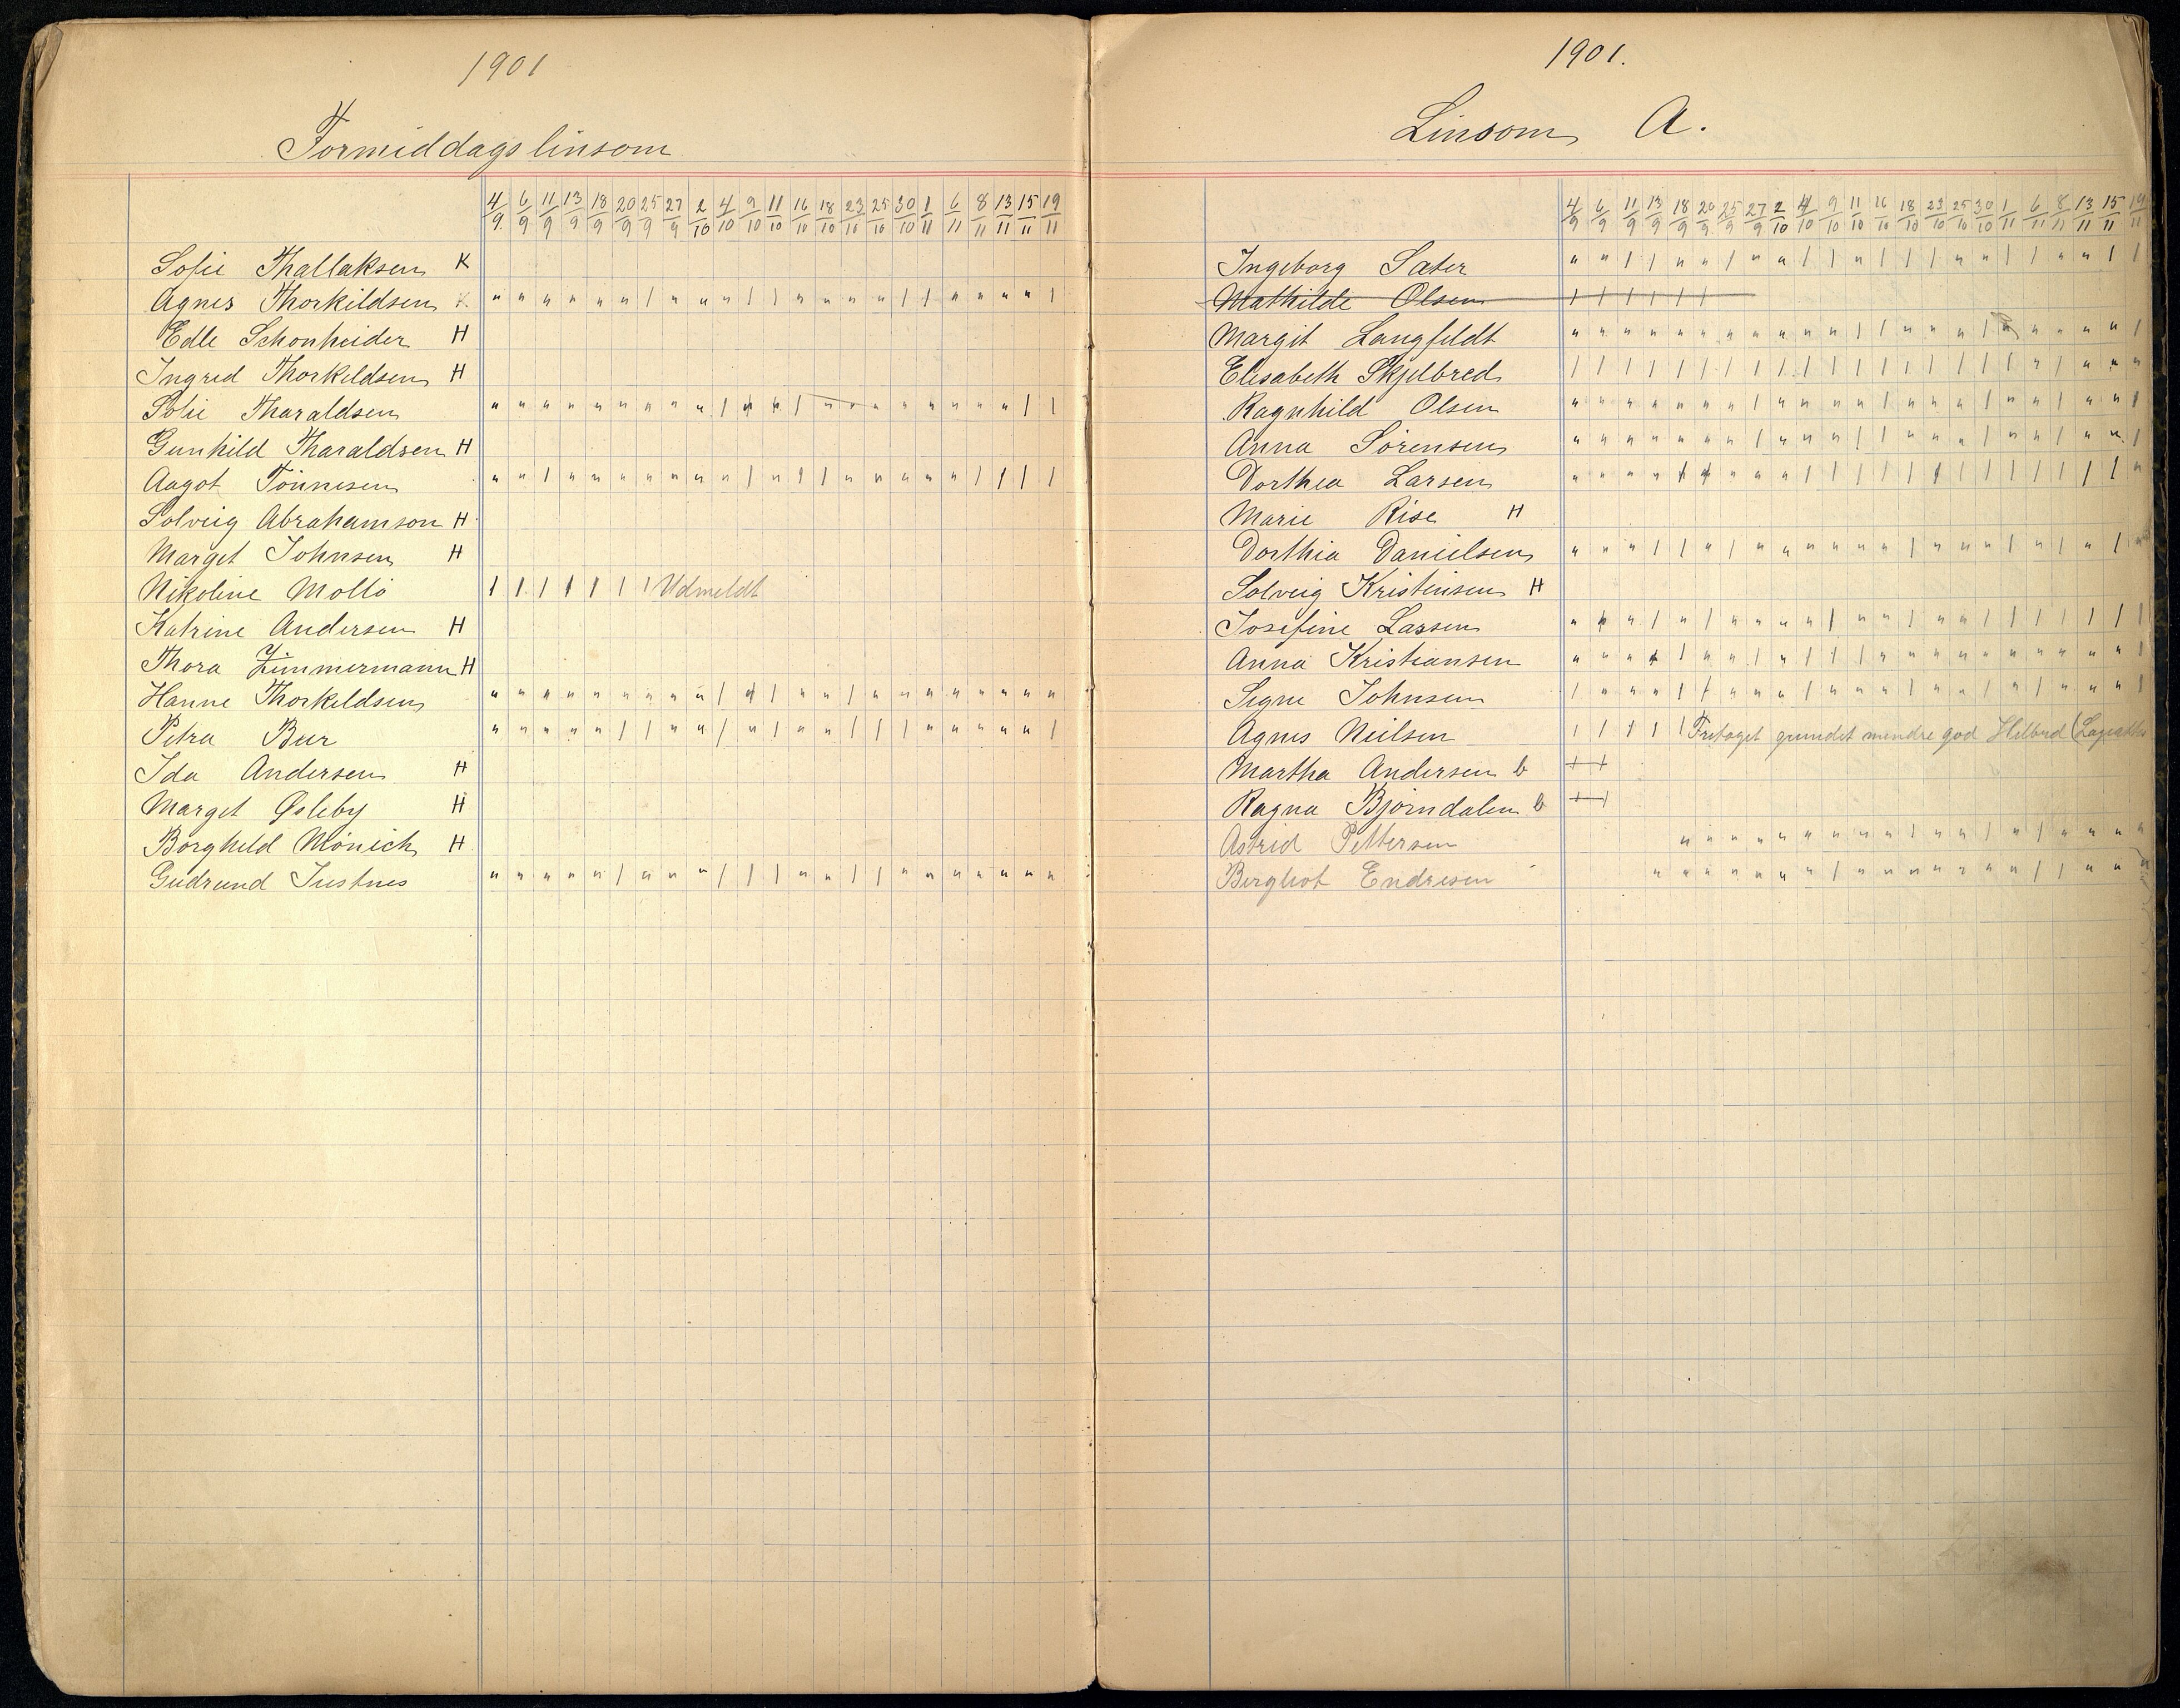 1901
Formiddagslinsom
4/9 6/9 11/9 13/9 18/9 20/9 25/9 27/9 2/10 4/10 9/10 11/10 16/10 18/10 23/10 25/10 30/10 1/11 6/11 8/11 13/11 15/11 19/11
Sofie Thallaksen K
Agnes Thorkildsen
Edle Schonheider H
Ingrid Thorkildsen H
Sofie Tharaldsen
Gunhild Tharaldsen H
Aagot Tönnesen
Solveig Abrahamson H
Marget Johnsen H
Nikoline Mollö Udmeldt
Katrine Andersen H
Thora Zimmermann H
Hanne Thorkildsen
Petra Bur
Ida Andersen H
Marget Øsleby H
Borghild Mönich H
Gudrund Justnes
1901.
Linsom A.
4/9 6/9 11/9 13/9 18/9 20/9 25/9 27/9 2/10 4/10 9/10 11/10 16/10 18/10 23/10 25/10 30/10 1/11 6/11 8/11 13/11 15/11 19/11
Ingeborg Sater
Mathilde Olsen
Margit Langfeldt
Elisabeth Skjelbred
Ragnhild Olsen
Anna Sörensen
Dorthea Larsen
Marie Rise H
Dorthia Danielsen
Solveig Kristensen H
Josefine Lassen
Anna Kristiansen
Signe Johnsen
Agnes Neilsen Fritaget grundet mindre god Helbred
Martha Andersen b
Ragna Björndalen b
Astrid Pettersen
Bergliot Endresen